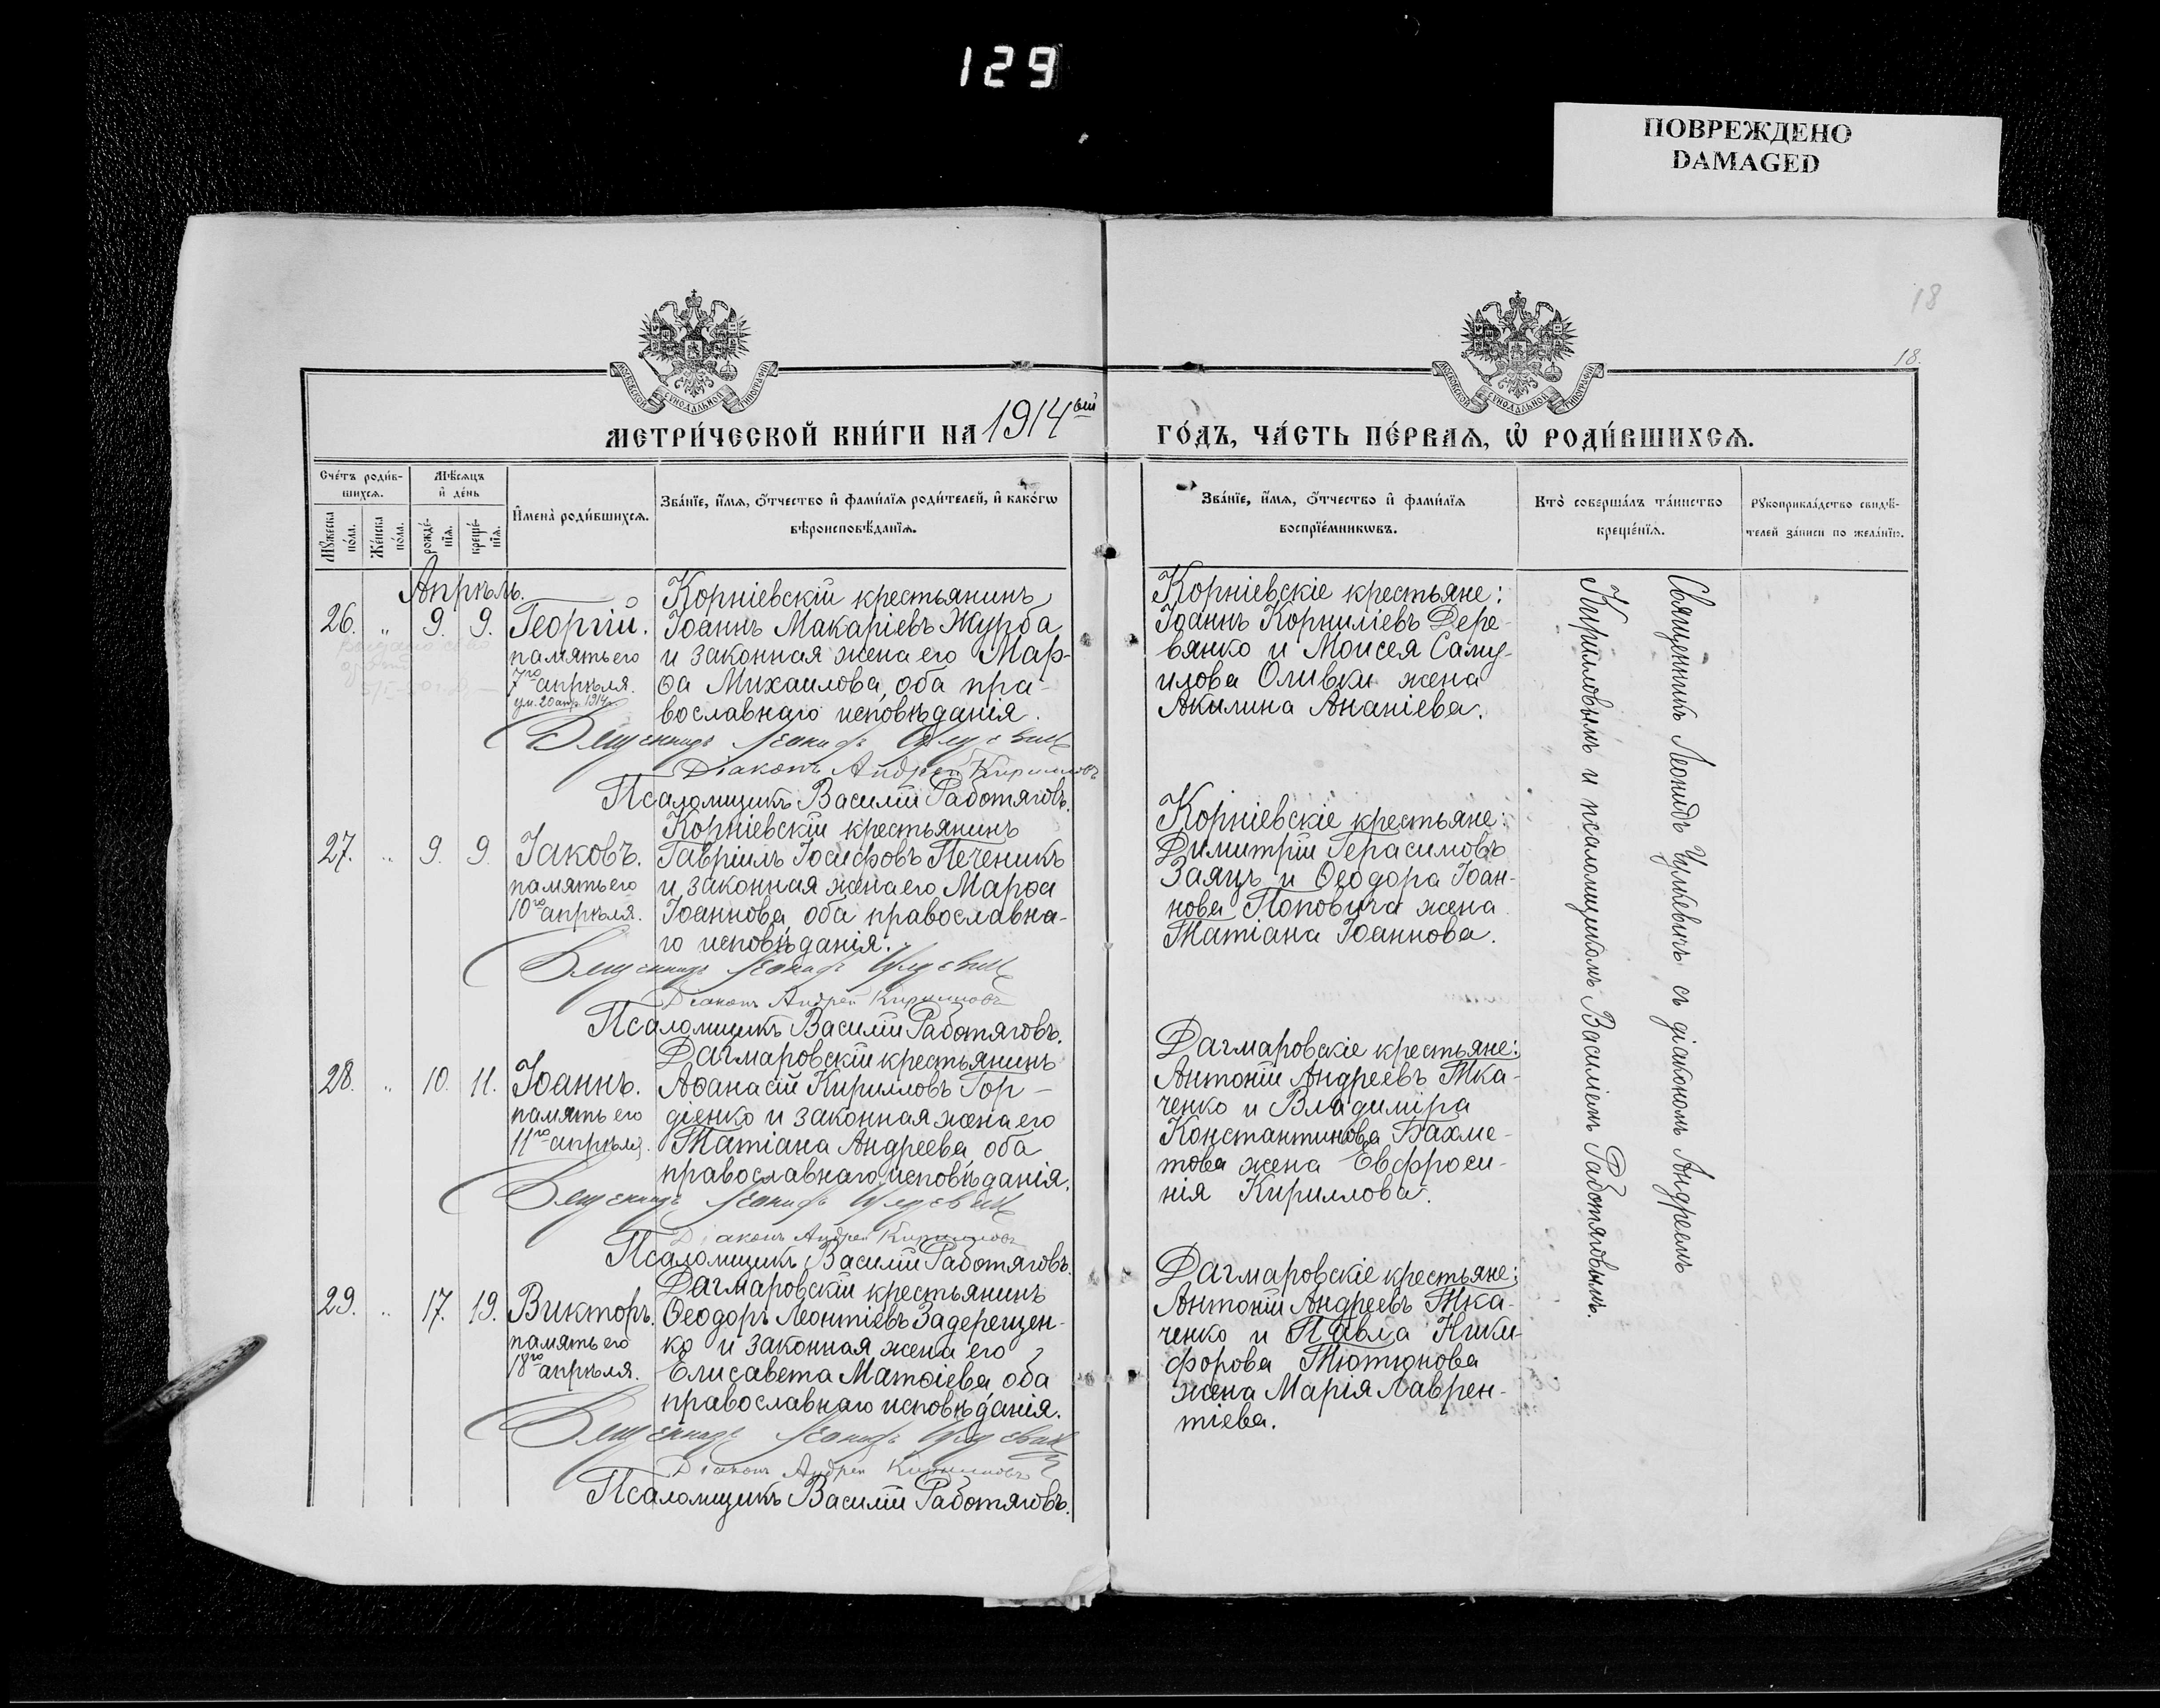 129
ПОВРЕЖДЕНО
DAMAGED
18
18.
МОСКОВСКОЙ СѴНОДАЛЬНОЙ ТИПОГРАФІИ
МОСКОВСКОЙ СѴНОДАЛЬНОЙ ТИПОГРАФІИ
МЕТРИ́ЧЕСКОЙ КНИ́ГИ НА 1914ый
ГО́ДЪ, ЧА́СТЬ ПЕ́РВАЯ, Ѡ҆ РОДИ́ВШИХСѦ.
Сче́тъ роди́в-
шихсѧ.
Мѣ́сѧцъ
и҆ де́нь
Мꙋ́жеска
по́ла.
Же́нска
по́ла.
рожде́-
нїѧ.
креще́-
нїѧ.
И҆мена̀ роди́вшихсѧ.
Зва́нїе, и҆́мѧ, ѻ҆́тчество и҆ фами́лїѧ роди́телей, и҆ како́гѡ
вѣроисповѣ́данїѧ.
Зва́нїе, и҆́мѧ, ѻ҆́тчество и҆ фами́лїѧ
воспрїе́мникѡвъ.
Кто̀ соверша́лъ та́инство
креще́нїѧ.
Рꙋкоприкла́дство свидѣ́-
телей за́писи по жела́нїю.
Апрѣль.
26. „ 9. 9. Георгій.
память его
7го апрѣля.
ум. 20 апр. 1914 г.
Корніевскій крестьянинъ
Іоаннъ Макаріевъ Журба
и законная жена его Мар-
ѳа Михаилова, оба пра-
вославнаго исповѣданія.
Священникъ Леонидъ Цулкевичъ
Діаконъ Андрей Кирилловъ
Псаломщикъ Василій Работяговъ.
Корніевскіе крестьяне:
Іоаннъ Корниліевъ Дере-
вянко и Моисея Саму-
илова Оливки жена
Акилина Ананіева.
27. „ 9. 9. Іаковъ.
память его
10го апрѣля.
Корніевскій крестьянинъ
Гавріилъ Іосифовъ Печеникъ
и законная жена его Марѳа
Іоаннова, оба православна-
го исповѣданія.
Священникъ Леонидъ Цулкевичъ
Діаконъ Андрей Кирилловъ
Псаломщикъ Василій Работяговъ.
Корніевскіе крестьяне:
Димитрій Герасимовъ
Заяцъ и Ѳеодора Іоан-
нова Поповича жена
Татіана Іоаннова.
28. „ 10. 11. Іоаннъ.
память его
11го апрѣля.
Дагмаровскій крестьянинъ
Аѳанасій Кирилловъ Гор-
діенко и законная жена его
Татіана Андреева, оба
православнаго исповѣданія.
Священникъ Леонидъ Цулкевичъ
Діаконъ Андрей Кирилловъ
Псаломщикъ Василій Работяговъ.
Дагмаровскіе крестьяне:
Антоній Андреевъ Тка-
ченко и Владиміра
Константинова Бахме-
това жена Евфроси-
нія Кириллова.
29. „ 17. 19. Викторъ.
память его
18го апрѣля.
Дагмаровскій крестьянинъ
Ѳеодоръ Леонтіевъ Задерещен-
ко и законная жена его
Елисавета Матѳіева, оба
православнаго исповѣданія.
Священникъ Леонидъ Цулкевичъ
Діаконъ Андрей Кирилловъ
Псаломщикъ Василій Работяговъ.
Дагмаровскіе крестьяне:
Антоній Андреевъ Тка-
ченко и Павла Ники-
форова Тютюнова
жена Марія Лаврен-
тіева.
Священникъ Леонидъ Цулкевичъ съ діакономъ Андреемъ
Кирилловымъ и псаломщикомъ Василіемъ Работяговымъ.